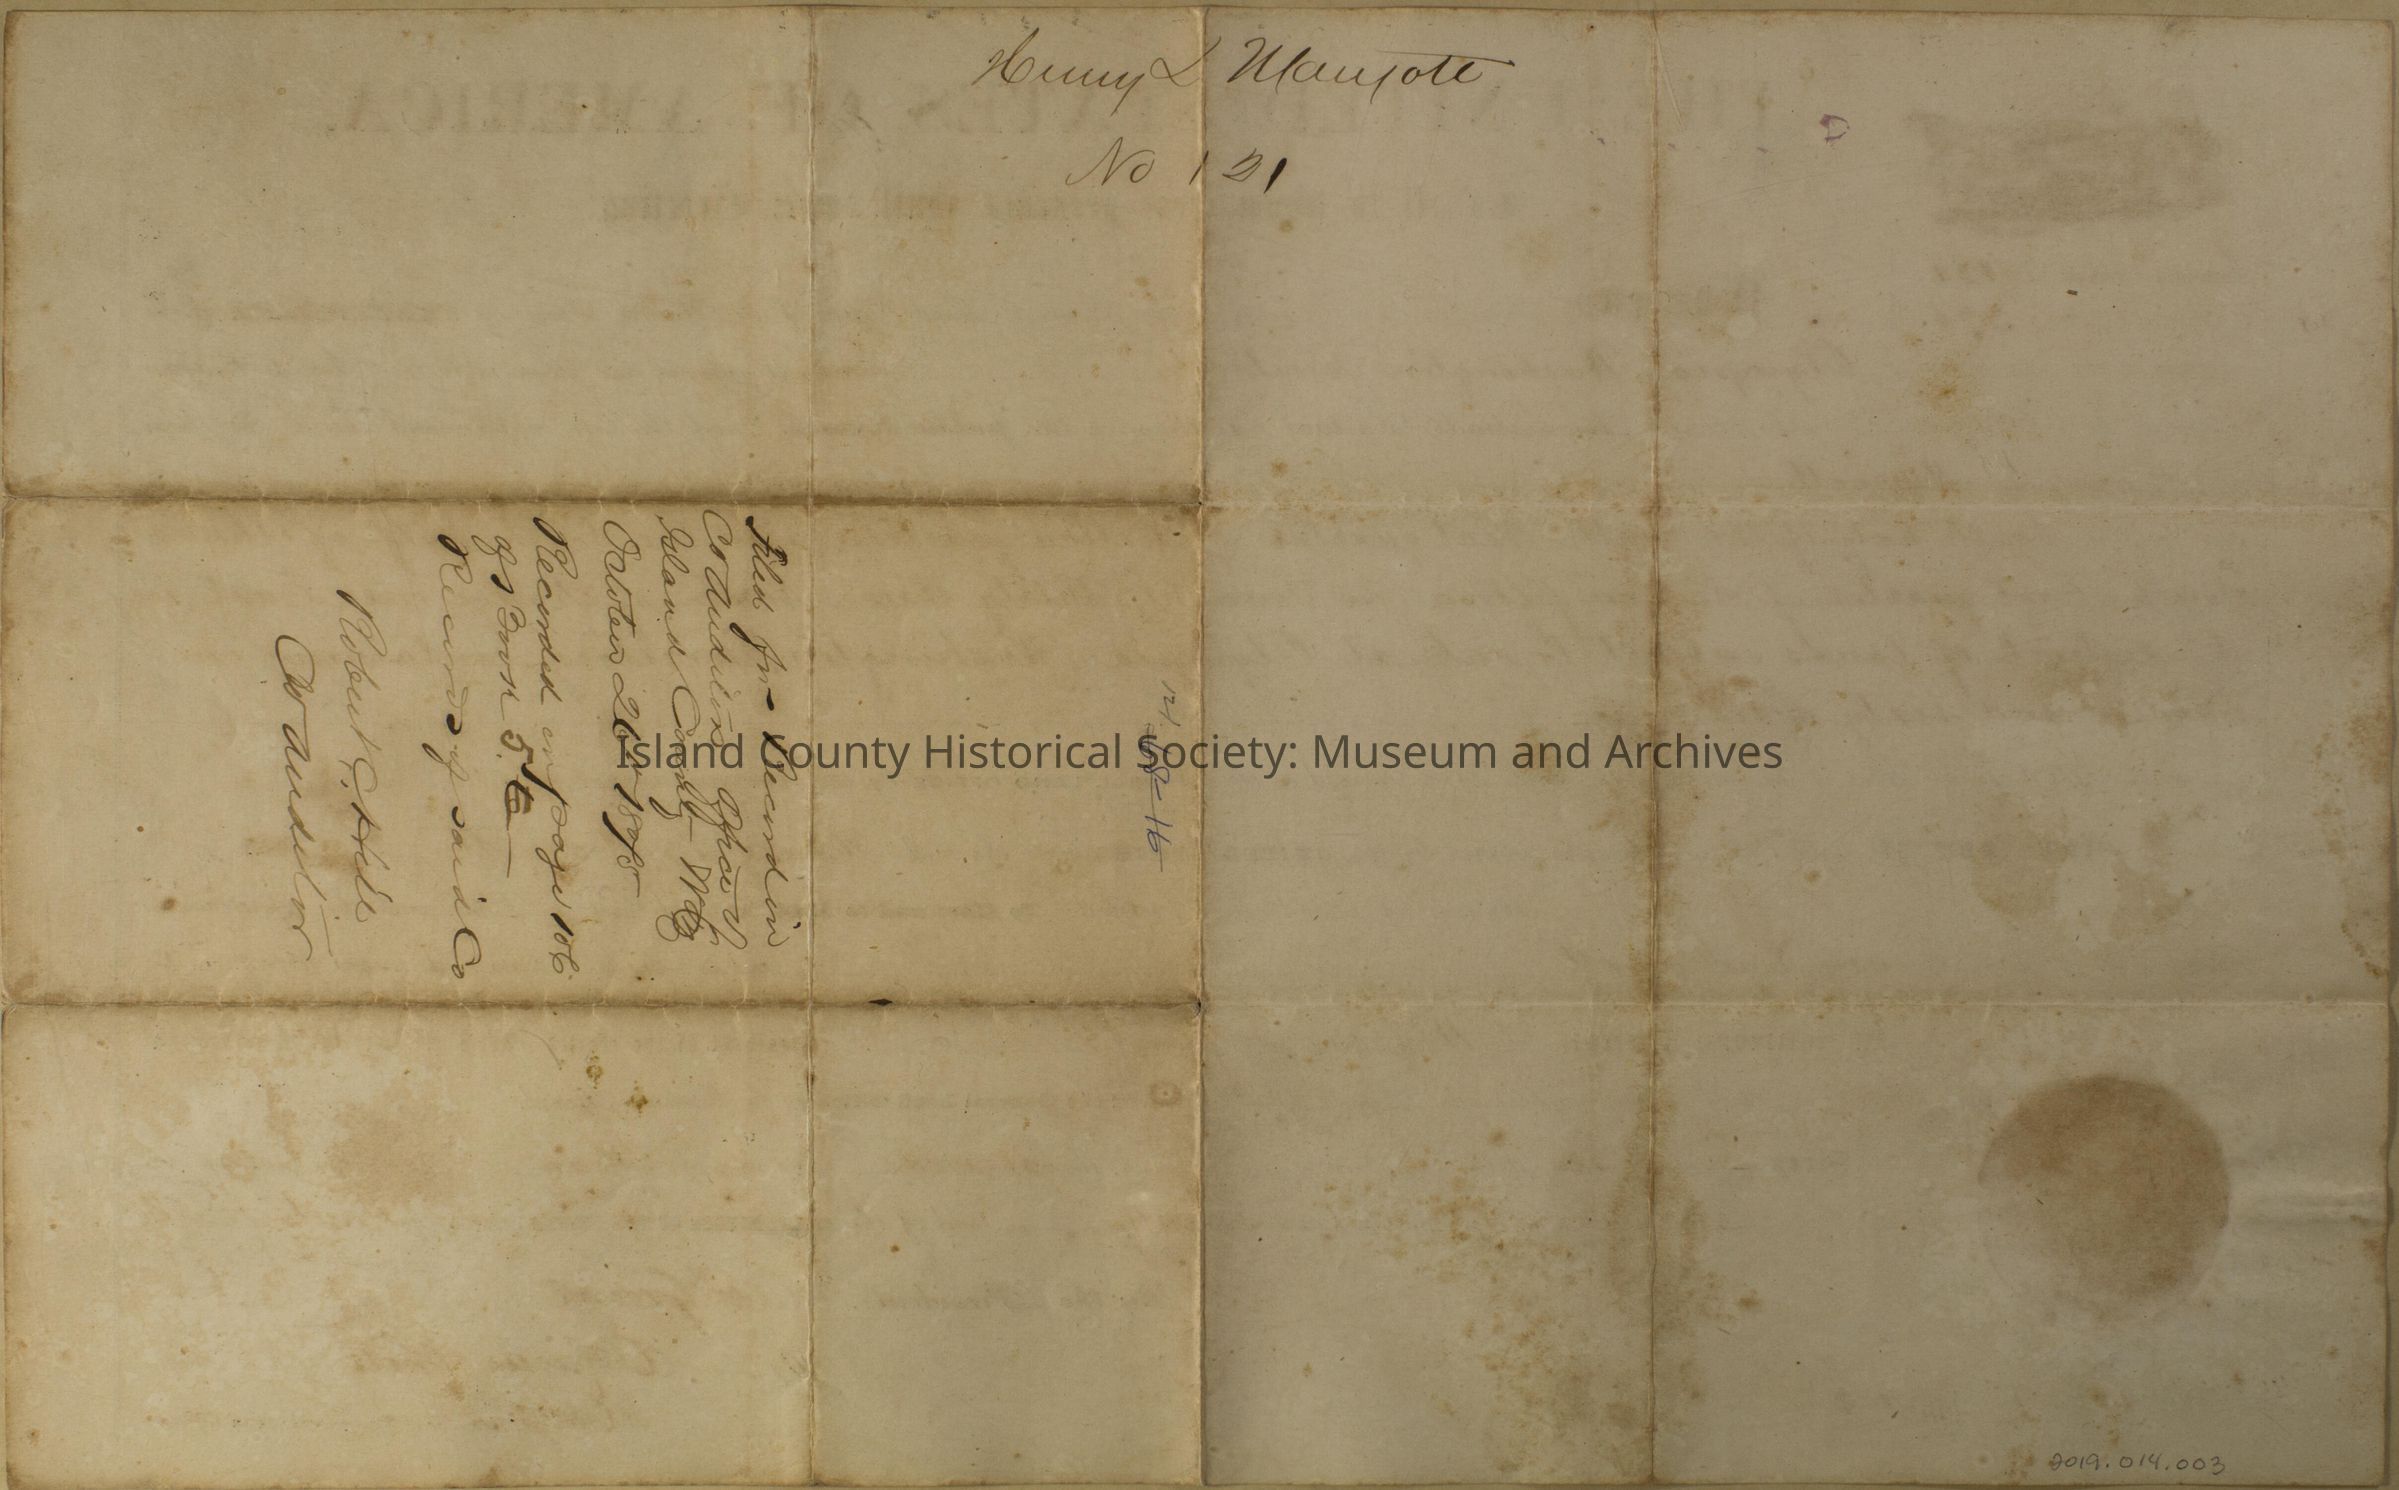 Henry L
No 121
Filed for Record in
Co Auditors office of
Island County W.T.
October 26th 187
Recorded on page 106
of Book 5
Records of said Co
Robert C. Hill
Co Auditor
Island County Historical Society: Museum and Archives
2019.014.003